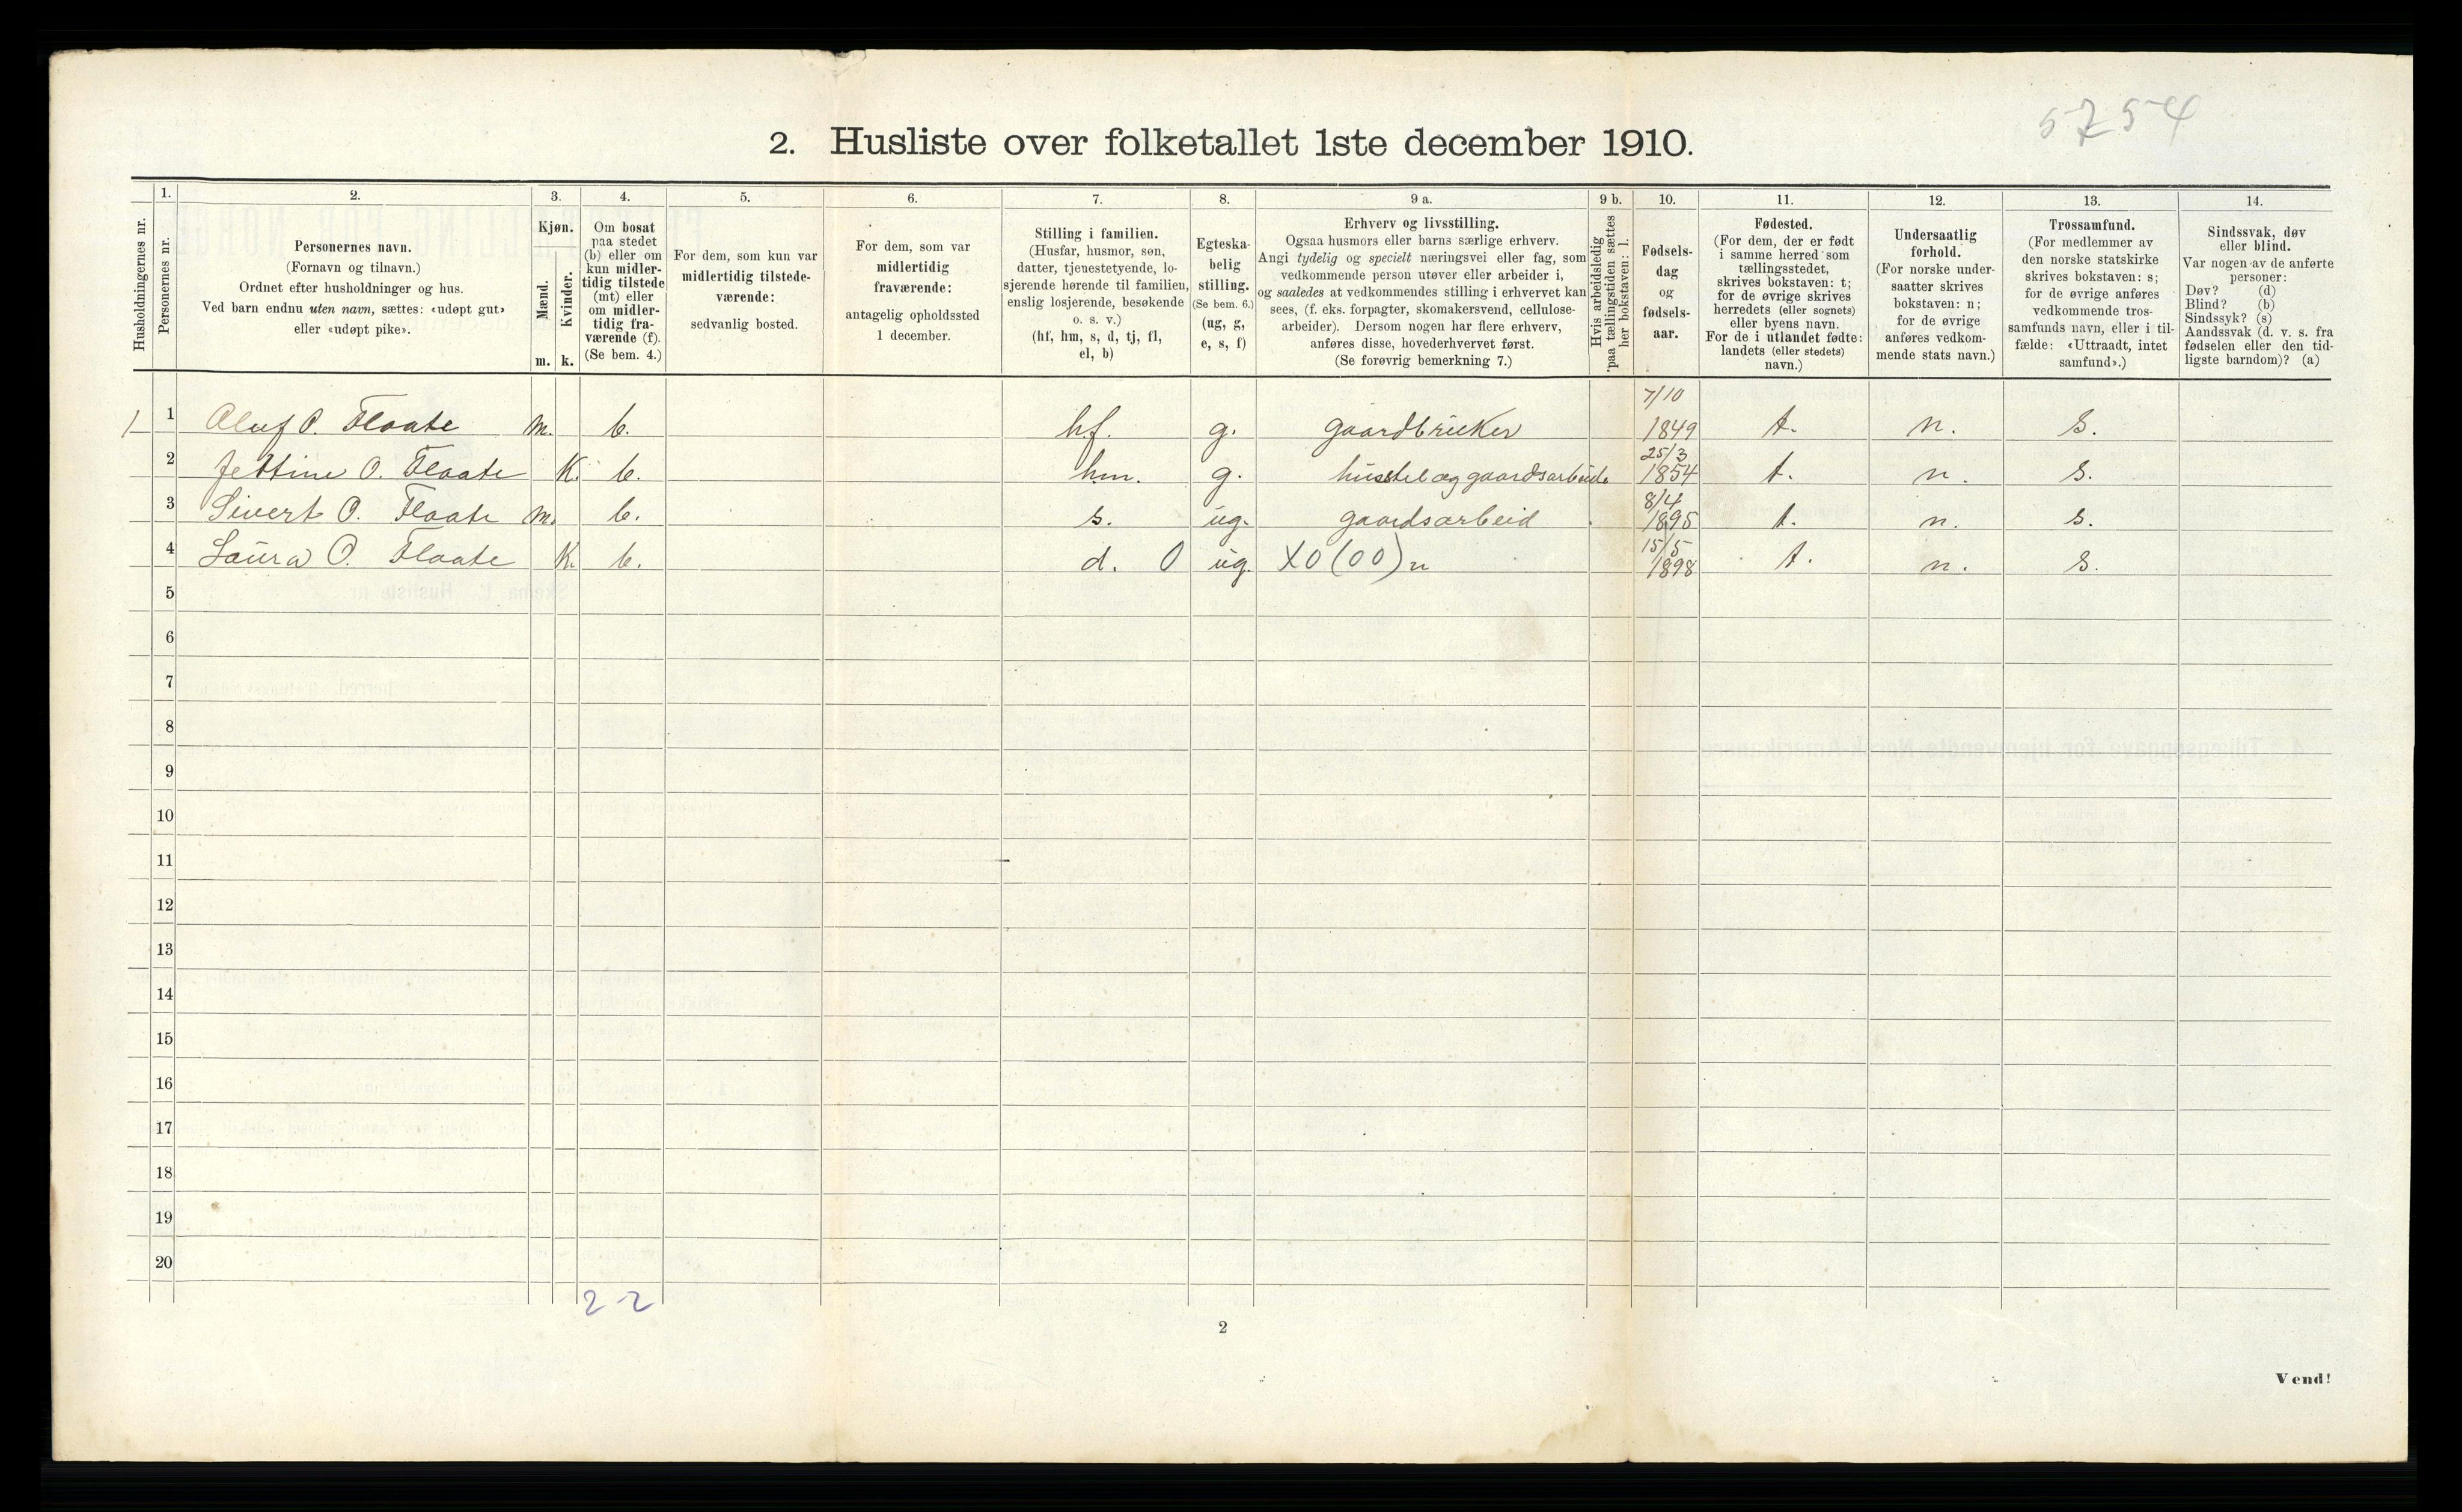 5754
2. Husliste over folketallet 1ste december 1910.
Husholdningernes nr.
1.
Personernes nr.
2.
Personernes navn.
(Fornavn og tilnavn.)
Ordnet efter husholdninger og hus.
Ved barn endnu uten navn, sættes: «udøpt gut»
eller «udøpt pike».
3.
Kjøn.
Mænd.
Kvinder.
m. k.
4.
Om bosat
paa stedet
(b) eller om
kun midler-
tidig tilstede
(mt) eller
om midler-
tidig fra-
værende (f).
(Se bem. 4.)
5.
For dem, som kun var
midlertidig tilstede-
værende:
sedvanlig bosted.
6.
For dem, som var
midlertidig
fraværende:
antagelig opholdssted
1 december.
7.
Stilling i familien.
(Husfar, husmor, søn,
datter, tjenestetyende, lo-
sjerende hørende til familien,
enslig losjerende, besøkende
o. s. v.)
(hf, hm, s, d, tj, fl,
el, b)
8.
Egteska-
belig
stilling.
(Se bem. 6.)
(ug, g,
e, s, f)
9 a.
Erhverv og livsstilling.
Ogsaa husmors eller barns særlige erhverv.
Angi tydelig og specielt næringsvei eller fag, som
vedkommende person utøver eller arbeider i,
og saaledes at vedkommendes stilling i erhvervet kan
sees, (f. eks. forpagter, skomakersvend, cellulose-
arbeider). Dersom nogen har flere erhverv,
anføres disse, hovederhvervet først.
(Se forøvrig bemerkning 7.)
9 b.
Hvis arbeidsledig
paa tællingstiden sættes
her bokstaven: l.
10.
Fødsels-
dag
og
fødsels-
aar.
11.
Fødested.
(For dem, der er født
i samme herred som
tællingsstedet,
skrives bokstaven: t;
for de øvrige skrives
herredets (eller sognets)
eller byens navn.
For de i utlandet fødte:
landets (eller stedets)
navn.)
12.
Undersaatlig
forhold.
(For norske under-
saatter skrives
bokstaven: n;
for de øvrige
anføres vedkom-
mende stats navn.)
13.
Trossamfund.
(For medlemmer av
den norske statskirke
skrives bokstaven: s;
for de øvrige anføres
vedkommende tros-
samfunds navn, eller i til-
fælde: «Uttraadt, intet
samfund».)
14.
Sindssvak, døv
eller blind.
Var nogen av de anførte
personer:
Døv? (d)
Blind? (b)
Sindssyk? (s)
Aandssvak (d. v. s. fra
fødselen eller den tid-
ligste barndom)? (a)
1 1 Oluf P. Flaate m. b. hf. g. gaardbruker 7/10 1849 t. n. s.
2 Jettine O. Flaate K. b. hm. g. husstel og gaardsarbeide 25/3 1854 t. n. s.
3 Sivert O. Flaate m. b. s. ug. gaardsarbeid 8/4 1895 t. n. s.
4 Laura O. Flaate K. b. d. 0 ug. X0 (00) n 15/5 1898 t. n. s.
5
6
7
8
9
10
11
12
13
14
15
16
17
18
19
20
2-2
2
Vend!